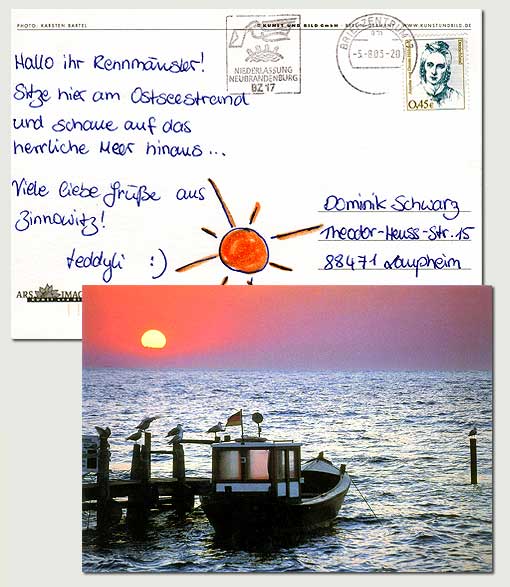 PHOTO: KARSTEN BARTEL
© KUNST UND BILD GmbH · BERLIN, GERMANY · WWW.KUNSTUNDBILD.DE
Hallo ihr Rennmäusler!
Sitze hier am Ostseestrand
und schaue auf das
herrliche Meer hinaus...
Viele liebe Grüße aus
Zinnowitz!
teddyli :)
NIEDERLASSUNG
NEUBRANDENBURG
BZ 17
BRIEFZENTRUM
-5.-8.03-20
0,45€
Dominik Schwarz
Theodor-Heuss-Str. 15
88471 Laupheim
ARS IMAG